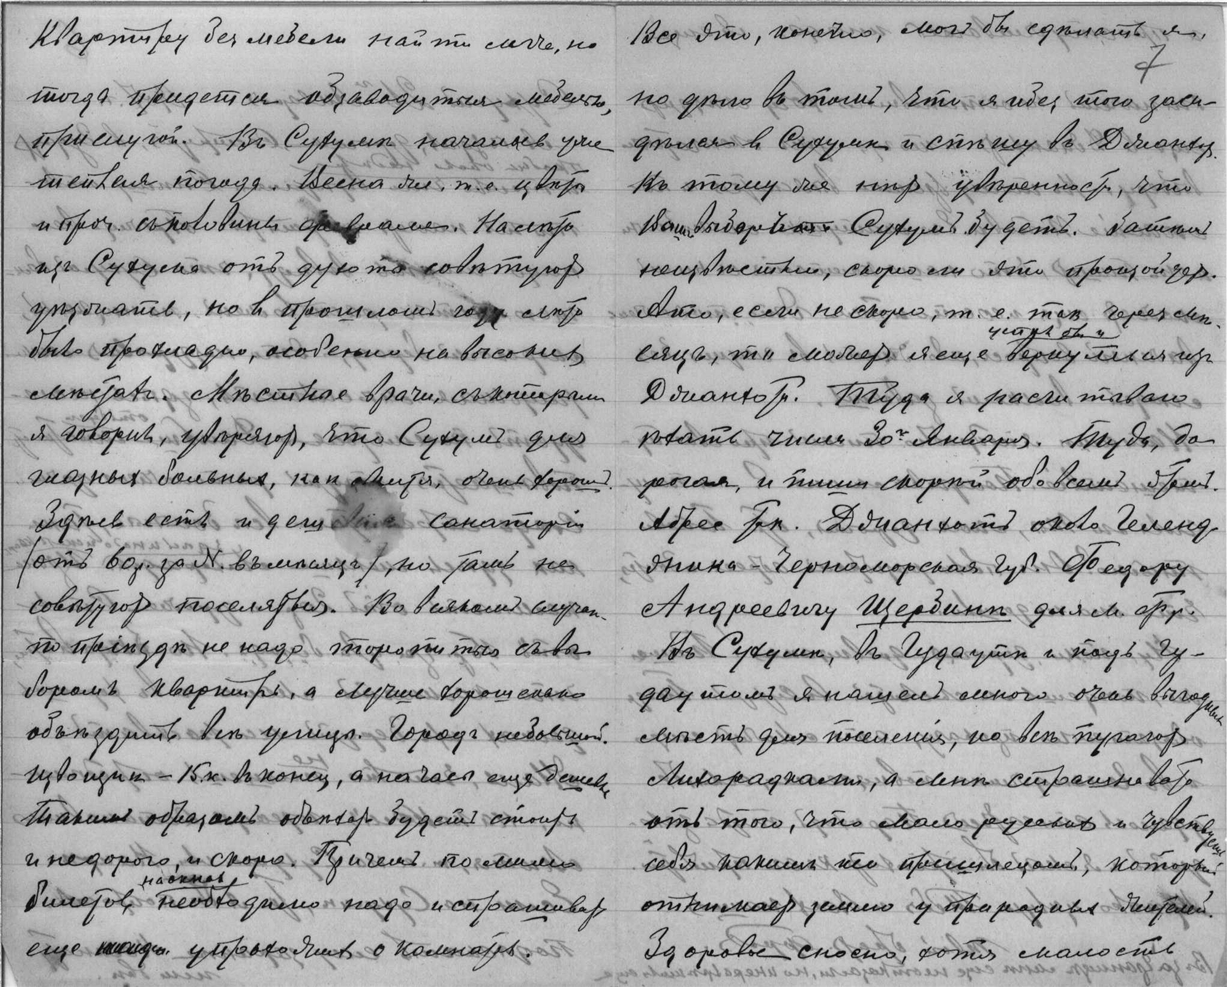 Квартиру без мебели найти легче, но
тогда придется обзаводиться мебелью,
прислугой. Въ Сухумѣ началась уже
теплая погода. Весна же, т.е. цвѣты
и проч. съ половины февраля. На лѣто
изъ Сухума отъ духоты совѣтуют
уѣзжать, но в прошломъ году лѣто
было прохладно, особенно на высоких
мѣстах. Мѣстные врачи, с которыми
я говорил, увѣряют, что Сухумъ для
глазных больных, как Митя, очень хорош.
Здѣсь есть и дешевые санаторіи
(отъ 60 р. за N. въ мѣсяцъ), но там не
совѣтуют поселяться. Во всяком случаѣ
по пріѣздѣ не надо торопиться съ вы
боромъ квартиры, а лучше хорошенько
объѣздить всѣ улицы. Городъ небольшой.
Извощик – 15 к. въ конец, а на часы еще дешевле
Таким образомъ объѣзд будетъ стоить
и недорого, и скоро. Причемъ помимо
билетов на окнах необходимо надо и спрашивать
еще у прохожих о комнатѣ.
Все это, конечно, мог бы сдѣлать я,
7
но дѣло въ томъ, что я и без того заси-
дѣлся в Сухумѣ и спѣшу въ Джанхот.
Къ тому же нѣт увѣренности, что
Сухумъ будетъ. Затѣм
неизвѣстно, скоро ли это произойдет.
А то, если не скоро, т. е. так через мѣ-
сяцъ, то может я еще устроив и вернуться из
Джанхота. Туда я расчитываю
ѣхать числа 30го Января. Туда, до
рогая, и пиши скорѣй обо всемъ этом.
Адрес так. Джанхотъ, около Геленд-
жика – Черноморская губ. Федору
Андреевичу Щербинѣ для М. Фр.
Въ Сухумѣ, въ Гудаутѣ и подъ Гу-
даутомъ я нашел много очень выгодных
мѣстъ для поселенія, но всѣ пугают
Лихорадками, а мнѣ страшновато
отъ того, что мало русских и чувствуешь
себя каким то пришлецомъ, который
отнимает землю у природных жителей.
Здоровье сносно, хотя малость